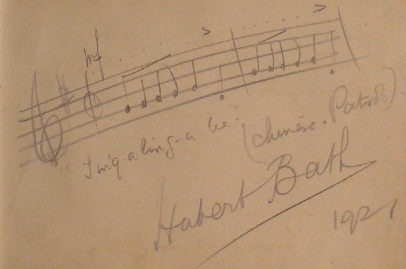 mf
Sing-a-ling-a-be?
(Chinese. Patrol)
Hubert Bath
192